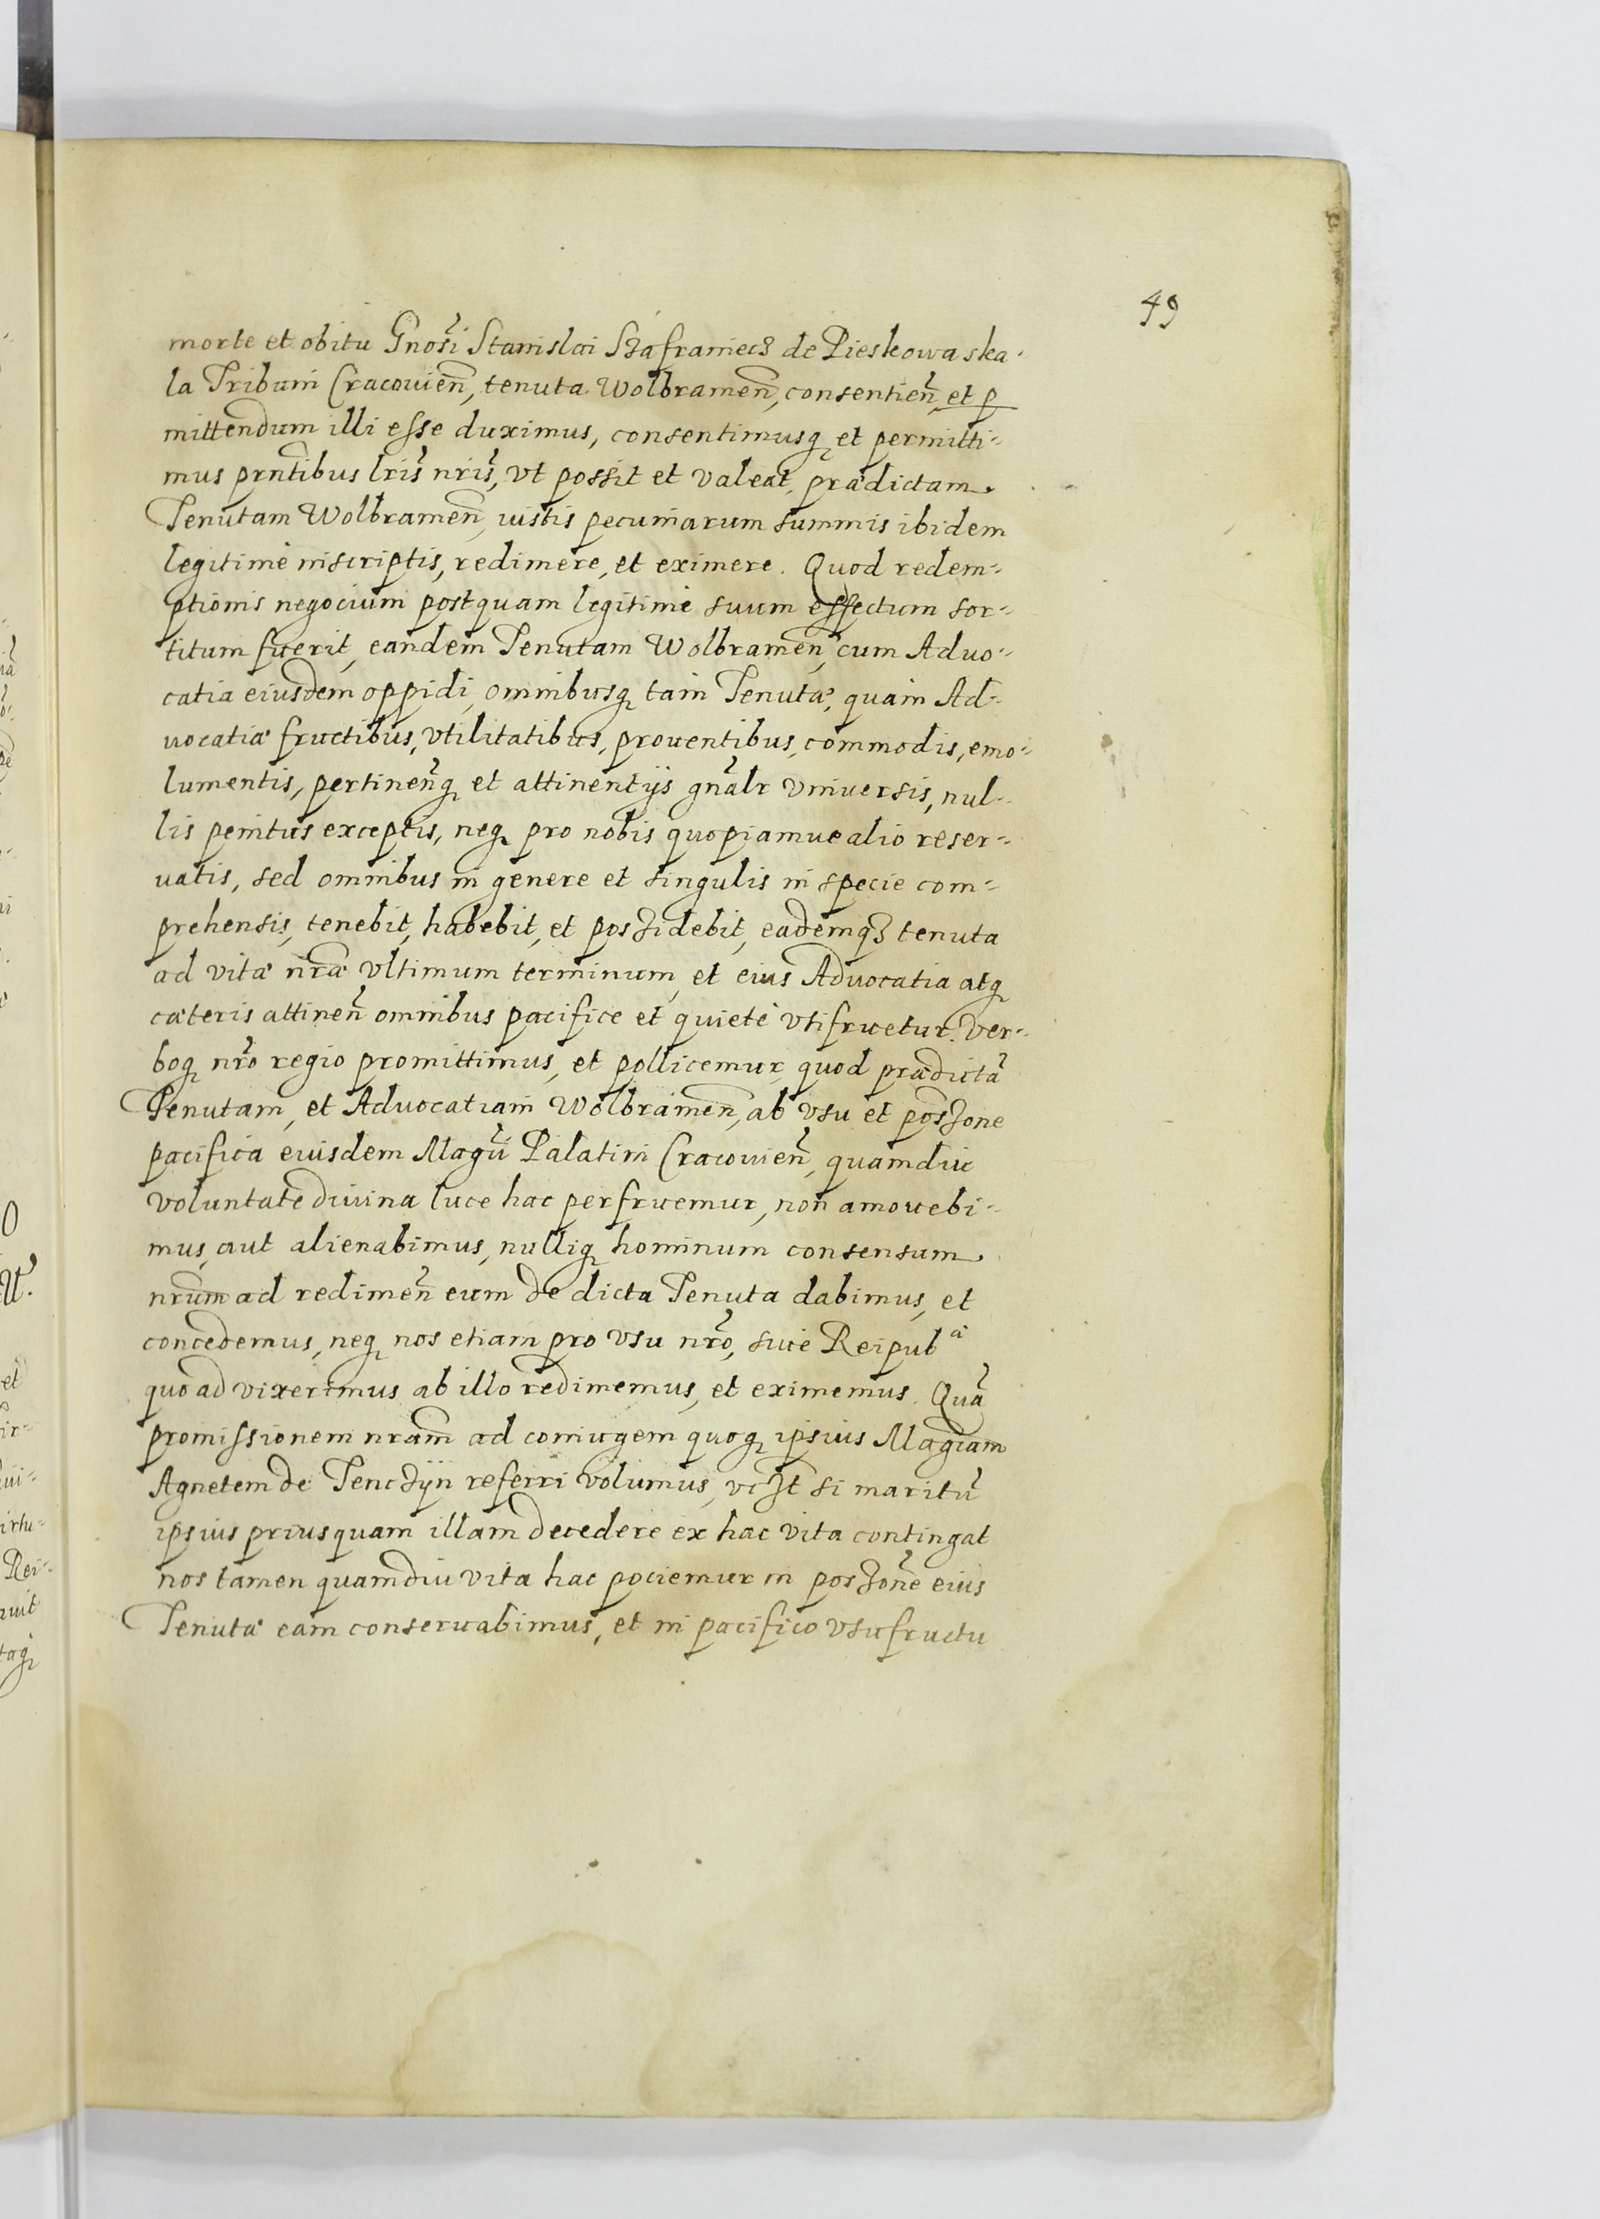 49
morte et obitu Gnosi Stanislai Szafraniecz de Pieskowa ska-
la Tribuni Cracouien̄, tenuta Wolbramen̄, consentien̄, et p
mittendum illi esse duximus, consentimusq₃ et permitti-
mus prntibus lris nris, vt possit et valeat, prædictam
Tenutam Wolbramen̄, iustis pecuniarum summis ibidem
legitimè inscriptis, redimere, et eximere. Quod redem-
ptionis negocium postquam legitimè suum effectum sor-
titum fuerit, eandem Tenutam Wolbramen̄, cum Aduo-
catia eiusdem oppidi, omnibusq₃ tam Tenutæ, quam Ad-
uocatiæ fructibus, vtilitatibus, prouentibus, commodis, emo-
lumentis, pertinen̄q₃ et attinentijs gnālr vniuersis, nul-
lis penitus exceptis, neq₃ pro nobis quopiamue alio reser-
uatis, sed omnibus in genere et singulis in specie com-
prehensis, tenebit, habebit, et possidebit, eademq₃ tenuta
ad vitæ nræ vltimum terminum, et eius Aduocatia atq₃
cæteris attinen̄ omnibus pacifice et quietè vtifruetur. Ver-
boq₃ nro regio promittimus, et pollicemur, quod prædictā
Tenutam, et Aduocatiam Wolbramen̄, ab vsu et posszone
pacifica eiusdem Magci Palatini Cracouien̄, quamdiu
voluntate diuina luce hac perfruemur, non amouebi-
mus, aut alienabimus, nulliq₃ hominum consensum
nrum ad redimen̄ eum de dicta Tenuta dabimus, et
concedemus, neq₃ nos etiam pro vsu nro, siue Reipubᵃ
quoad vixerimus ab illo redimemus, et eximemus. Quā
promissionem nram ad coniugem quoq₃ ipsius Magcam
Agnetem de Tenczyn referri volumus, vczt si maritū
ipsius priusquam illam decedere ex hac vita contingat
nos tamen quamdiu vita hac pociemur in poszone eius
Tenutæ eam conseruabimus, et in pacifico vsufructu